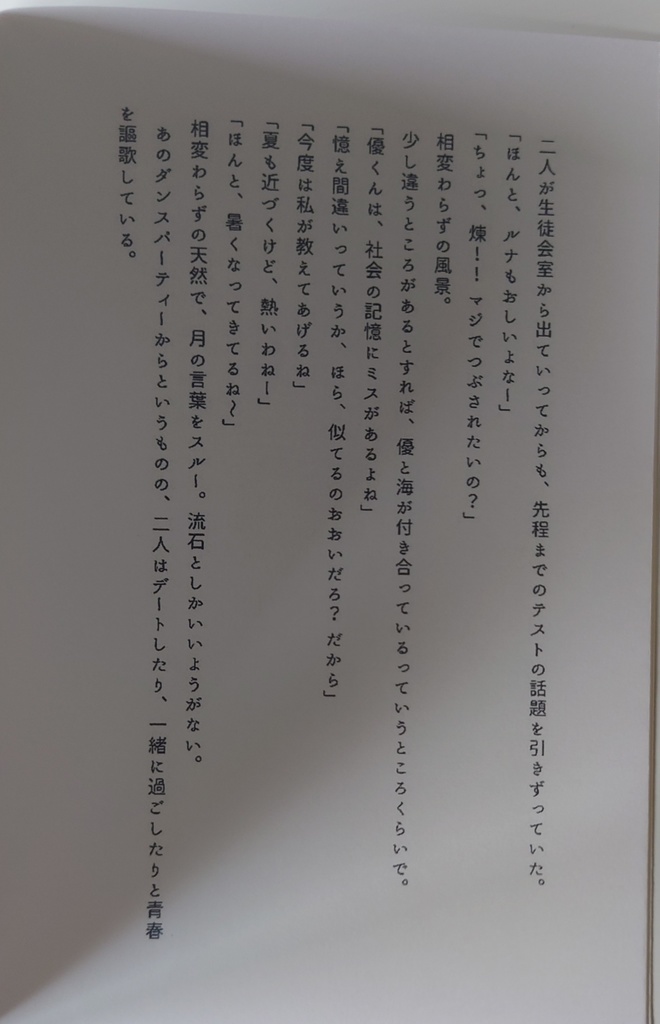 二人が生徒会室から出ていってからも、先程までのテストの話題を引きずっていた。
「ほんと、ルナもおしいよなー」
「ちょっ、煉！！マジでつぶされたいの？」
相変わらずの風景。
少し違うところがあるとすれば、優と海が付き合っているっていうところくらいで。
「優くんは、社会の記憶にミスがあるよね」
「憶え間違いっていうか、ほら、似てるのおおいだろ？だから」
「今度は私が教えてあげるね」
「夏も近づくけど、熱いわねー」
「ほんと、暑くなってきてるね～」
相変わらずの天然で、月の言葉をスルー。流石としかいいようがない。
あのダンスパーティーからというものの、二人はデートしたり、一緒に過ごしたりと青春
を謳歌している。